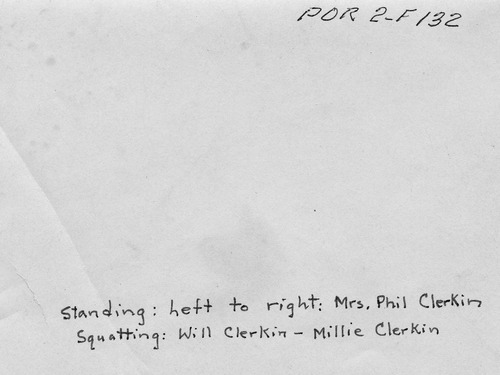 POR 2-F 132
Standing: heft to right: Mrs. Phil Clerkin
Squatting: Will Clerkin - Millie Clerkin